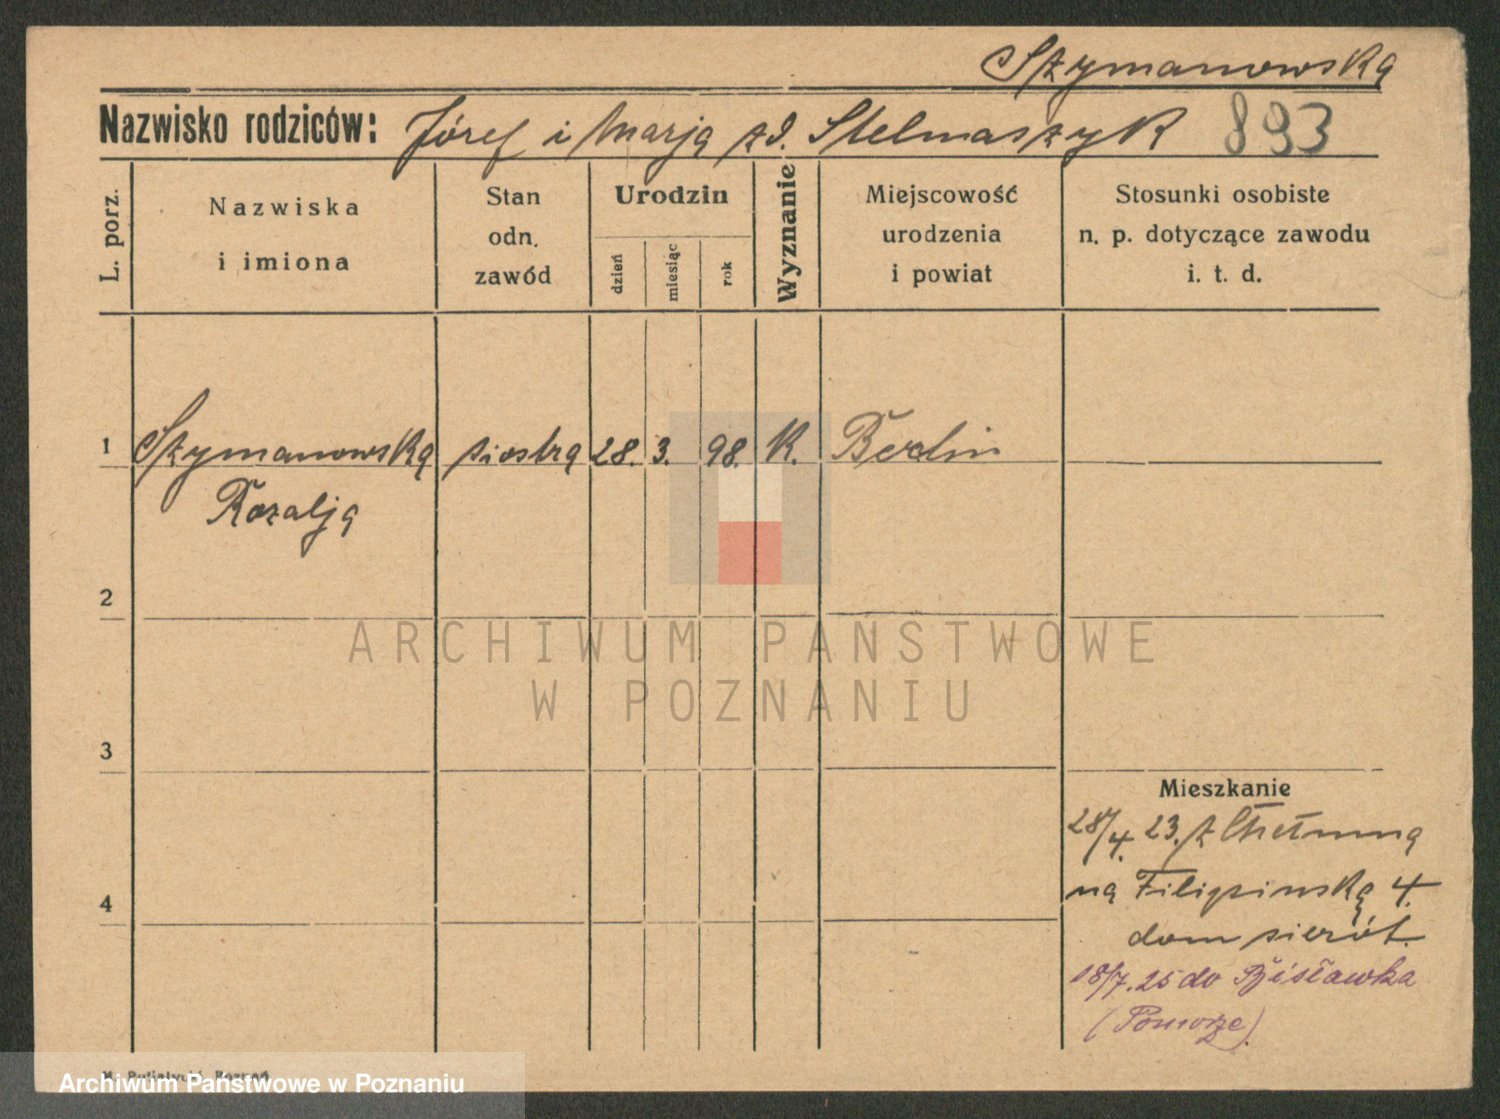 Szymanowska
Nazwisko rodziców: Józef i Marja zd. Stelmaszyk 893
L. porz.
Nazwiska
i imiona
Stan
odn.
zawód
Urodzin
dzień
miesiąc
rok
Wyznanie
Miejscowość
urodzenia
i powiat
Stosunki osobiste
n. p. dotyczące zawodu
i. t. d.
1 Szymanowska siostra 28. 3. 98. K. Berlin
Rozalja
2
ARCHIWUM PAŃSTWOWE
W POZNANIU
3
Mieszkanie
28/4. 23. z Chełmna
4
na Filipinska 4.
dom sierót.
18/7. 25 do Bysławka
(Pomorze)
Poznań
Archiwum Państwowe w Poznaniu